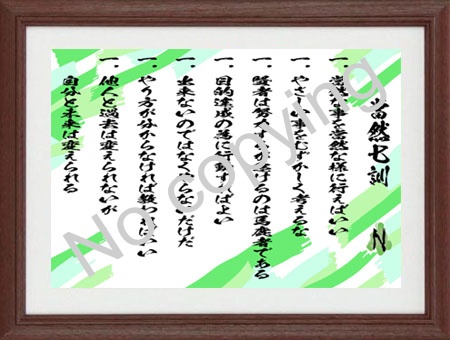 当然七訓 N
一.当然な事を当然な様に行えばいい
一.やさしい事をむずかしく考えるな
一.賢者は努力するが げるのは馬鹿者である
一.目的達成の為に行動すればよい
一.出来ないのではなくやらないだけだ
一.やり方が分からなければ教わればいい
一.他人と過去は変えられないが
自分と未来は変えられる
No copying